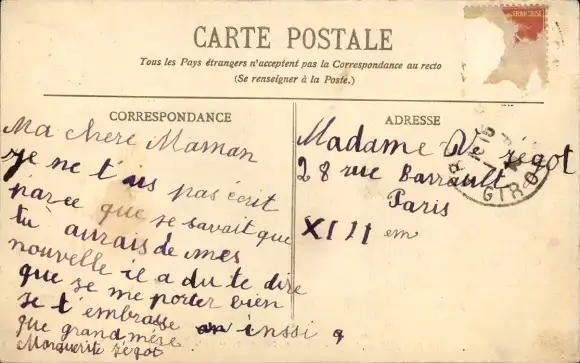 CARTE POSTALE
Tous les Pays étrangers n'acceptent pas la Correspondance au recto
(Se renseigner à la Poste.)
CORRESPONDANCE
Ma chere Maman
je ne t'as pas écrit
parce que se savait que
tu aurais de mes
nouvelle il a du te dire
que je me porter bien
je t'embrasse an inssi q
que grand mère
Marguerite Jégot
ADRESSE
Madame Ve Jégot
28 rue Barrault
Paris
XIII em
GIRO